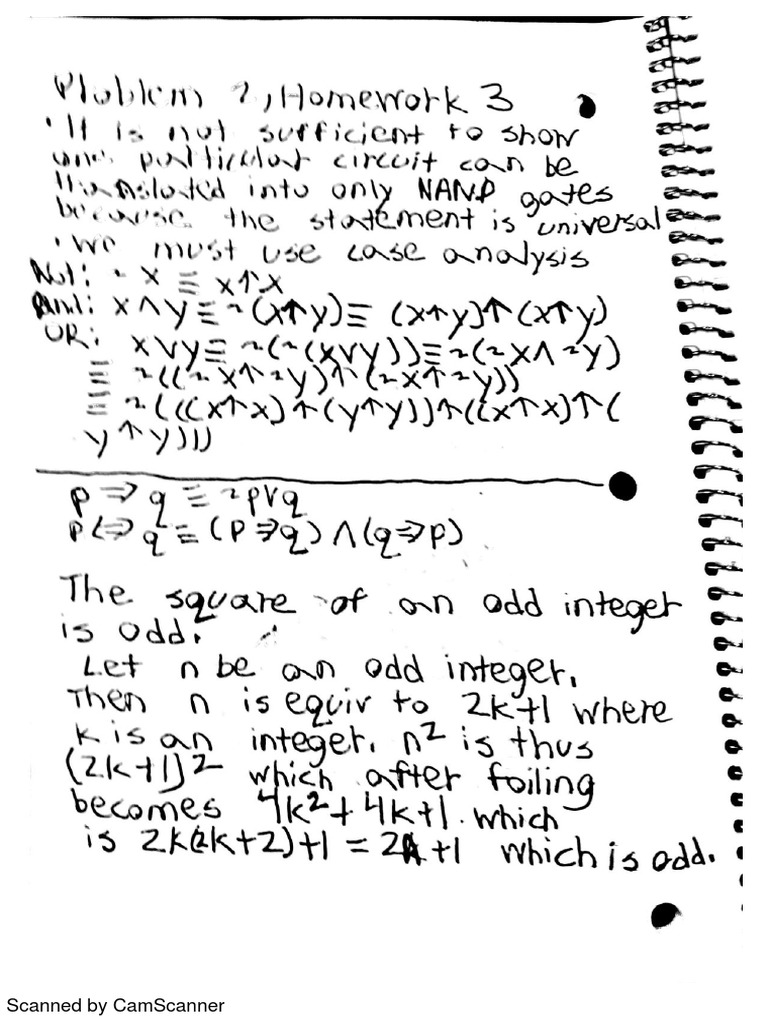 Problem 2, Homework 3
• It is not sufficient to show
one particular circuit can be
translated into only NAND gates
because the statement is universal
• We must use case analysis
Not: ~x ≡ x↑x
And: x∧y ≡ ~(x↑y) ≡ (x↑y)↑(x↑y)
OR: x∨y ≡ ~(~(x∨y)) ≡ ~(~x∧~y)
≡ ~((~x↑~y)↑(~x↑~y))
≡ ~(((x↑x)↑(y↑y))↑((x↑x)↑(
y↑y)))
p⇒q ≡ ~p∨q
p⇔q ≡ (p⇒q)∧(q⇒p)
The square of an odd integer
is odd.
Let n be an odd integer.
Then n is equiv to 2k+1 where
k is an integer. n² is thus
(2k+1)² which after foiling
becomes 4k²+4k+1. which
is 2k(2k+2)+1 = 2A+1 which is odd.
Scanned by CamScanner